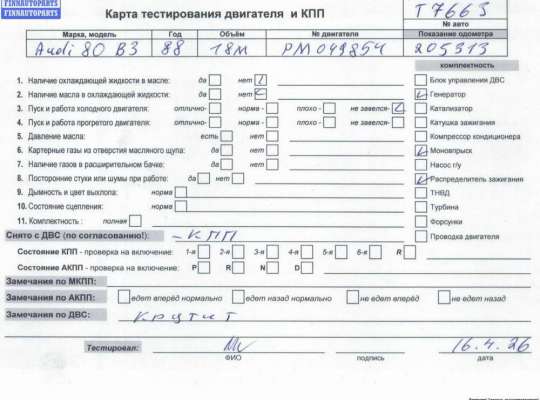 FINNAUTOPARTS
FINNAUTOPARTS
Карта тестирования двигателя и КПП
T7663
№ авто
Марка, модель Год Объём № двигателя Показание одометра
Audi 80 B3 88 1,8м PM 049854 205313
комплектность
1. Наличие охлаждающей жидкости в масле: да нет Блок управления ДВС
2. Наличие масла в охлаждающей жидкости: да нет Генератор
3. Пуск и работа холодного двигателя: отлично- норма - плохо - не завелся- Катализатор
4. Пуск и работа прогретого двигателя: отлично- норма - плохо - не завелся- Катушка зажигания
5. Давление масла: есть нет Компрессор кондиционера
6. Картерные газы из отверстия масляного щупа: да нет Моновпрыск
7. Наличие газов в расширительном бачке: да нет Насос г/у
8. Посторонние стуки или шумы при работе: да нет Распределитель зажигания
9. Дымность и цвет выхлопа: норма ТНВД
10. Состояние сцепления: норма Турбина
11. Комплектность : полная Форсунки
Снято с ДВС (по согласованию!): - КПП Проводка двигателя
Состояние КПП - проверка на включение: 1-я 2-я 3-я 4-я 5-я 6-я R
Состояние АКПП - проверка на включение: P R N D
Замечания по МКПП:
Замечания по АКПП: едет вперёд нормально едет назад нормально не едет вперёд не едет назад
Замечания по ДВС: Крутит
Тестировал: 16.4.26
ФИО подпись дата